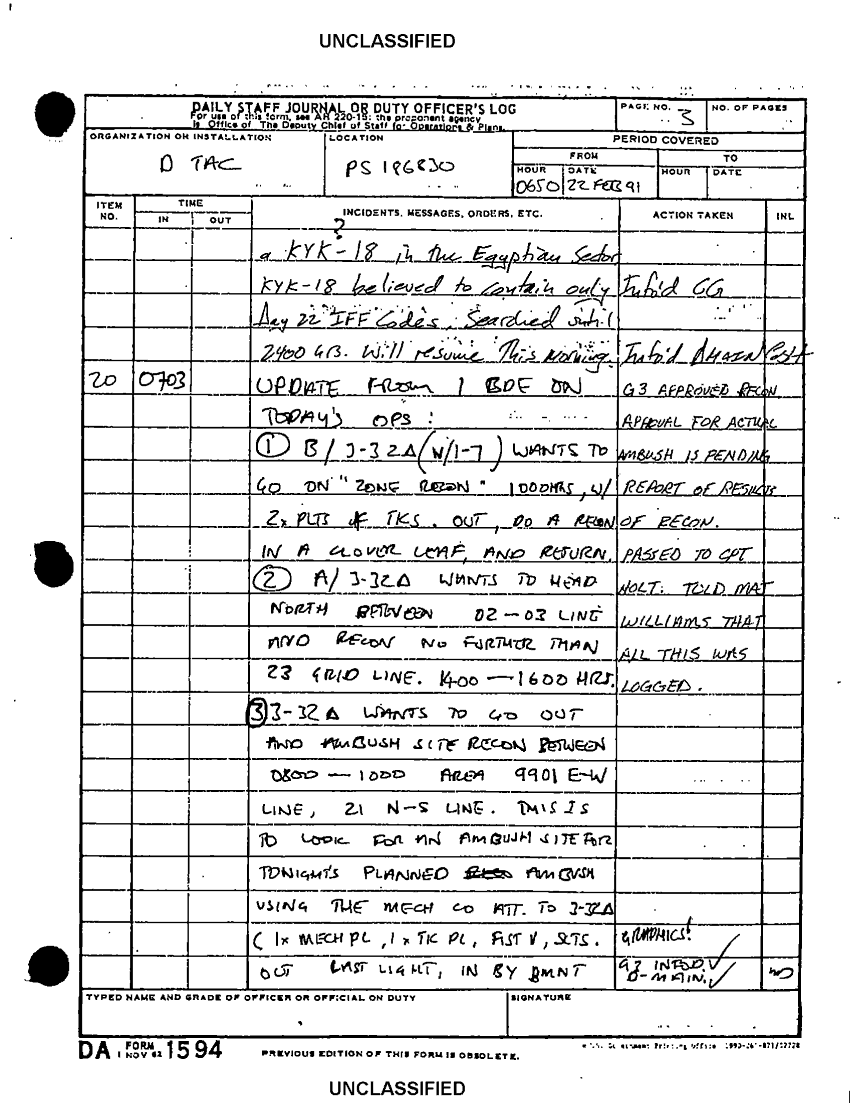 UNCLASSIFIED
DAILY STAFF JOURNAL OR DUTY OFFICER'S LOG
For use of this form, see AR 220-15; the proponent agency
is Office of The Deputy Chief of Staff for Operations & Plans.
PAGE NO. 3
NO. OF PAGES
ORGANIZATION OR INSTALLATION
D TAC
LOCATION
PS 196830
PERIOD COVERED
FROM
TO
HOUR DATE
HOUR DATE
0650 22 FEB 91
ITEM NO.
TIME
IN OUT
INCIDENTS, MESSAGES, ORDERS, ETC.
ACTION TAKEN
INL
?
a KYK-18 in the Egyptian Sector
KYK-18 believed to contain only Info'd CG
Day 22 IFF Codes. Searched until
2400 hrs. Will resume This Morning. Info'd DMAIN
20 0703 UPDATE FROM 1 BDE ON G3 APPROVED RECON
TODAY'S OPS: APROVAL FOR ACTUAL
① B/3-32Δ (W/1-7) WANTS TO AMBUSH IS PENDING
GO ON "ZONE RECON" 1000HRS, W/ REPORT OF RESULTS
2x PLTS of TKS. OUT, DO A RECON OF RECON.
IN A CLOVER LEAF, AND RETURN. PASSED TO CPT
② A/3-32Δ WANTS TO HEAD HOLT: TOLD MAT
NORTH BETWEEN 02-03 LINE WILLIAMS THAT
AND RECON NO FURTHER THAN ALL THIS WAS
23 GRID LINE. 1400-1600 HRS. LOGGED.
③ 3-32Δ WANTS TO GO OUT
AND AMBUSH SITE RECON BETWEEN
0800-1000 AREA 9901 E-W
LINE, 21 N-S LINE. THIS IS
TO LOOK FOR AN AMBUSH SITE FOR
TONIGHT'S PLANNED AMBUSH
USING THE MECH CO ATT. TO 3-32Δ
(1x MECH PL, 1x TK PL, FIST V, SCTS. GRAPHICS!
OUT LAST LIGHT, IN BY BMNT G3 INFOD. D-MAIN.
TYPED NAME AND GRADE OF OFFICER OR OFFICIAL ON DUTY
SIGNATURE
DA FORM 1 NOV 62 1594
PREVIOUS EDITION OF THIS FORM IS OBSOLETE.
UNCLASSIFIED